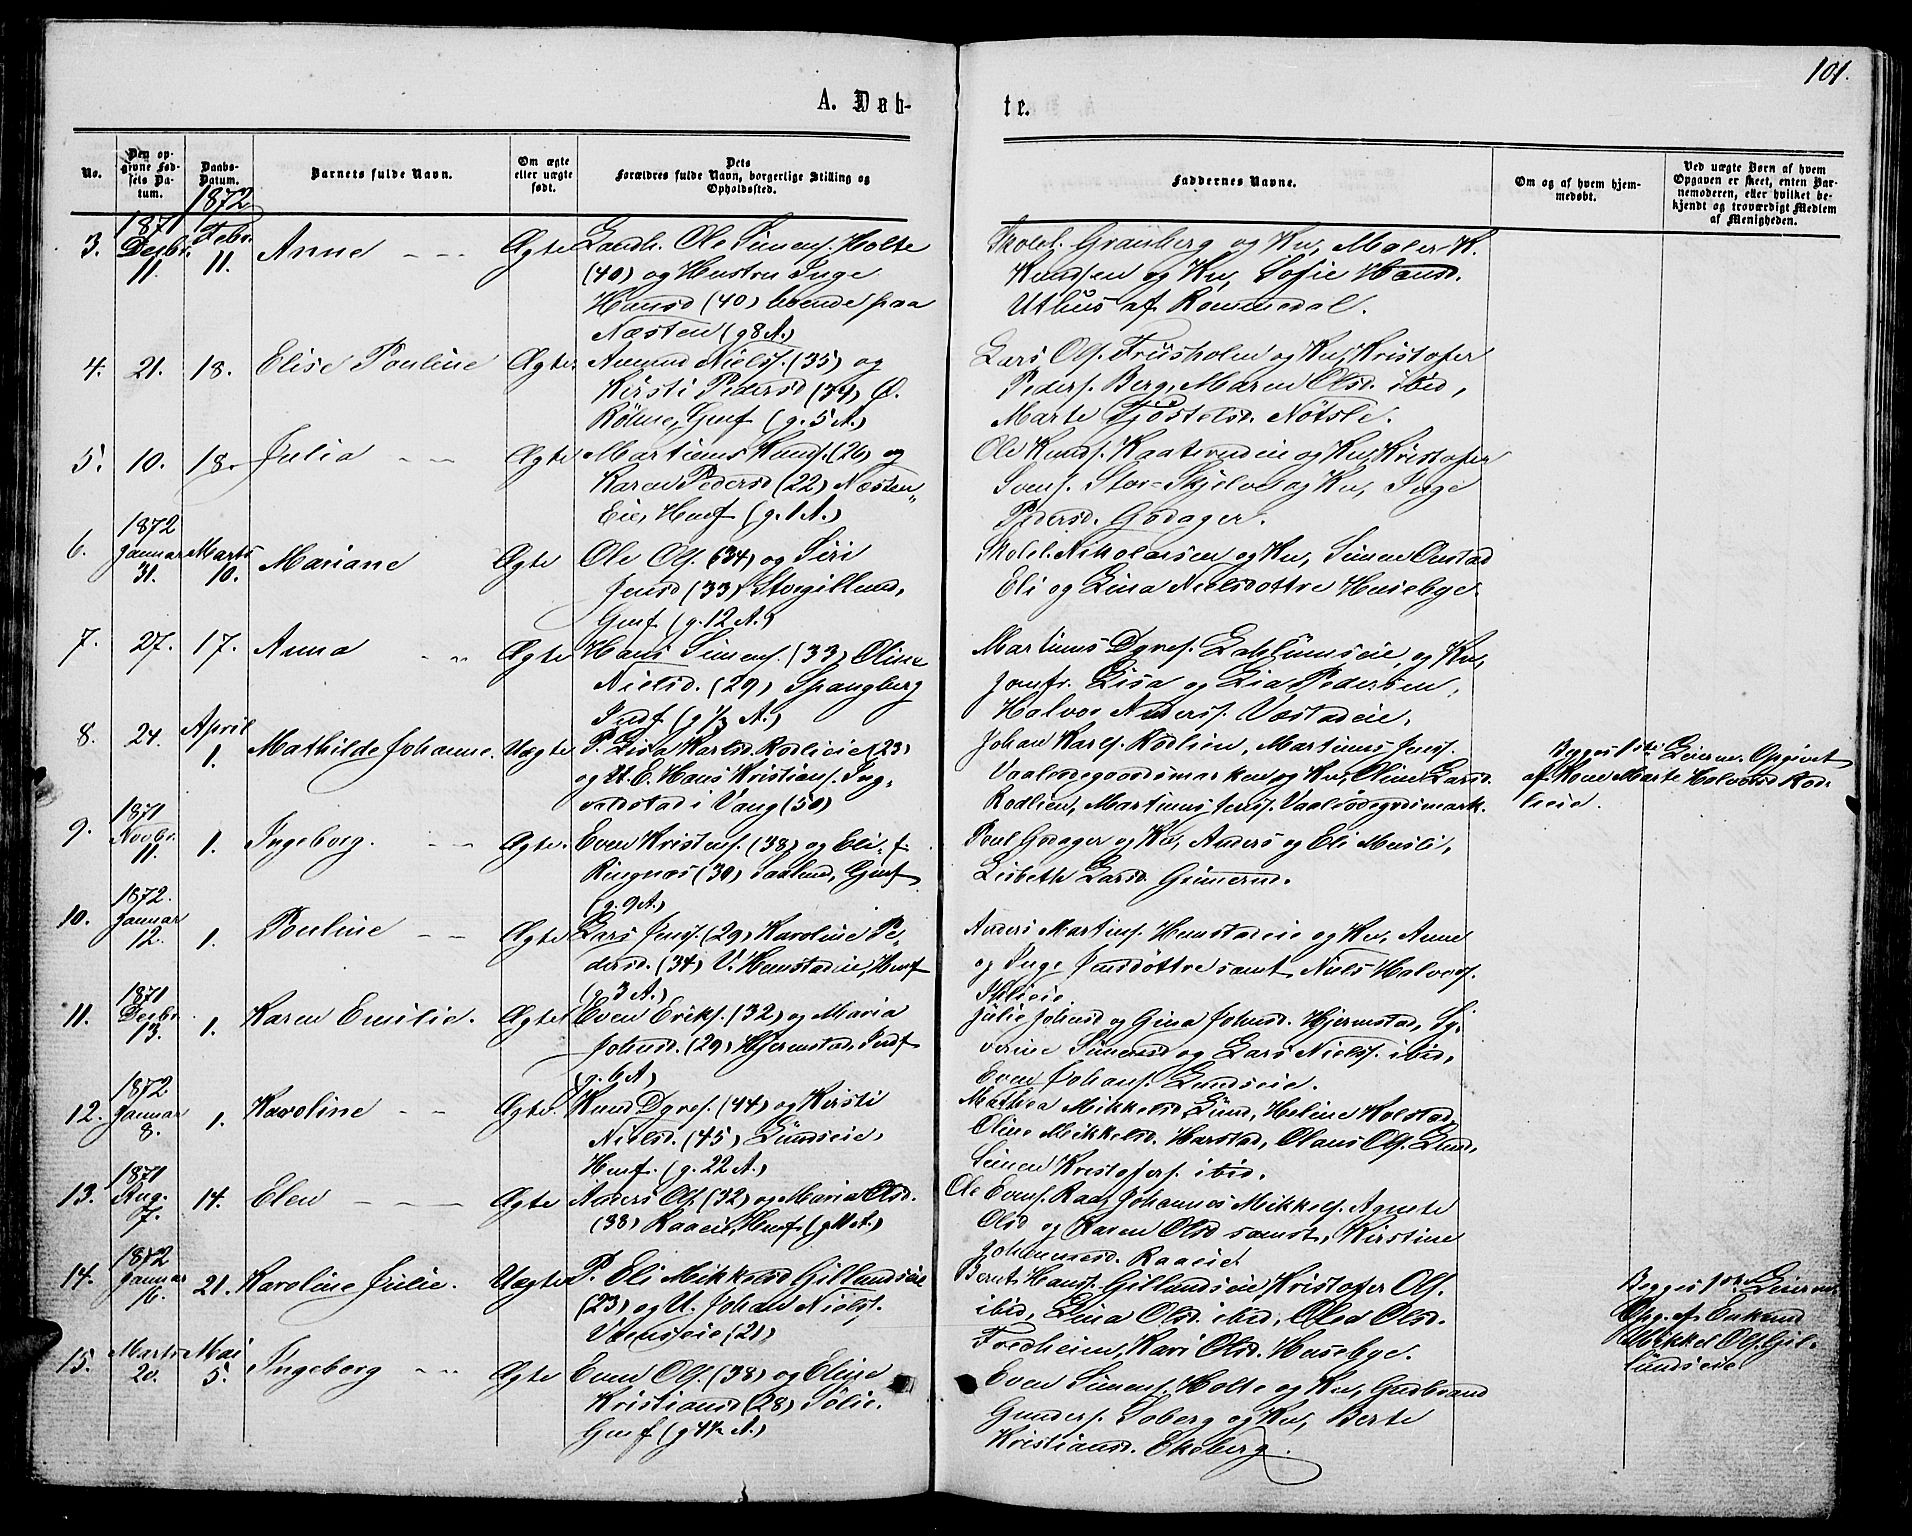 101.
A. Døb-
te.
No.
Den op-
givne Fød-
sels Da-
tum.
Daabs-
Datum.
Barnets fulde Navn.
Om ægte
eller uægte
født.
Dets
Forældres fulde Navn, borgerlige Stilling og
Opholdssted.
Faddernes Navne.
Om og af hvem hjem-
medøbt.
Ved uægte Børn af hvem
Opgaven er skeet, enten Bar-
nemoderen, eller hvilket be-
kjendt og troværdigt Medlem
af Menigheden.
1871 1872
3. Desbr. 11. Febr. 11. Anne Ægte
Landh. Ole Simens. Holte
(40) og Hustru Inge
(40) boende paa
Næsten (g 8 A.)
Skolel. Gransberg og Kv, Maler K.
Knudsen og Kv, Sofie Hansd.
Uthus af Rommedal.
4. 21. 18. Elise Pouline Ægte.
Amund Nielss. (35) og
Kirsti Pedersd (34) Ø.
(g. 5 A.)
Lars Ols. Friisholm og Kv, Kristofer
Peders. Berg, Maren Olsd. ibid,
Marte
5. 10. 18. Julia Ægte
Martinus Knuds. (26) og
Karen Pedersd (22) Næsten
Eie, Husf (g. 1 A.)
Ole Knuds. og Kv, Kristofer
Svens. Stor-Skjelve og Kv, Inge
Pedersd. Godager.
1872
6. Januar 31. Marts 10. Mariane Ægte
Ole Ols. (34) og Siri
Jensd (33) Storgillund,
Gmf (g. 12 A.)
Skolel. Nikolaisen og Kv, Simen Onstad
Eli og Lina Nielsdøttre Husebye
7. 27. 17. Anna Ægte
Hans Simens. (33) Oline
Nielsd. (29) Spangberg
Indf (g 1/3 A.)
Martinus Dyres. og Kv,
Jomfr. Lisa og Lia Pedersen,
Halvor Anders. Væstadeie,
8. 24. April 1. Mathilde Johanne. Uægte
P. Lisa Karlsd. Rodlieie (23)
og U. E. Hans Kristians. Ing-
valdstad i Vang (50)
Johan Karls. Rodlien, Martinus Jens.
og Kv, Oline Larsd.
Rodlien, Martinus Jens.
Begges 1ste Leierm. Opgivet
af Kone Marte Halvorsd Rod-
lieie.
1871
9. Novbr. 11. 1. Ingeborg. Ægte.
Even Kristens. (38) og Eli f.
Ringnæs (30) Saxlund, Gmf
(g. 9 A.)
Poul Godager og Kv, Anders og Eli
Lisbeth Larsd. Grimerud.
1872.
10. Januar 12. 1. Pouline Ægte
Lars Jens. (29) Karoline Pe-
dersd. (34) V. Hemstadeie, Husf
(g. 3 A.)
Anders Martins. Hemstadeie og Kv, Anne
og Inge Jensdøttre samt Niels Halvors.
1871
11. Desbr. 13. 1. Karen Emilie. Ægte
Even Eriks. (32) og Maria
Johnsd. (29) Hjermstad, Indf
(g. 6 A)
Julie Johnsd og Gina Johnsd. Hjermstad, Sy-
verine Simensd og Lars Niels. ibid,
Even Johans. Lundseie.
1872
12. Januar 8. 1. Karoline Ægte.
Knud Dyres. (44) og Kirsti
Nielsd. (45) Lundseie,
Husf. (g. 22 A.)
Mathea Mikkelsd Lund, Heline Kolstad,
Oline Mikkelsd. Harstad, Olaus Ols. Lund,
Simen Kristofers. ibid.
1871
13. Aug. 7. 14. Elen Ægte
Anders Ols. (32) og Maria Olsd.
(38) Raaeie, Husf (g 11 A.)
Ole Evens. Raa, Johannes Mikkels. Agnete
Olsd og Karen Olsd samt, Kirstine
Johannesd. Raaeie.
1872
14. Januar 16. 21. Karoline Julie. Uægte
P. Eli Mikkelsd Gillundseie
(23) og U. Johan Niels.
(21)
Bernt Hans. Gillundseie, Kristofer Ols.
ibid, Lina Olsd. ibid, Olea Olsd.
Fredheim, Kari Olsd. Husebye.
Begges 1ste Leierm
Opg. af Enkem.
Mikkel Ols. Gil-
lundseie
15. Marts 20. Mai 5. Ingeborg Ægte
Even Ols. (38) og Eline
Kristiansd (28) Solie.
Gmf (g 4½ A.)
Even Simens. Holte og Kv, Gudbrand
Gunders. Soberg og Kv, Berte
Kristiansd. Ekeberg.